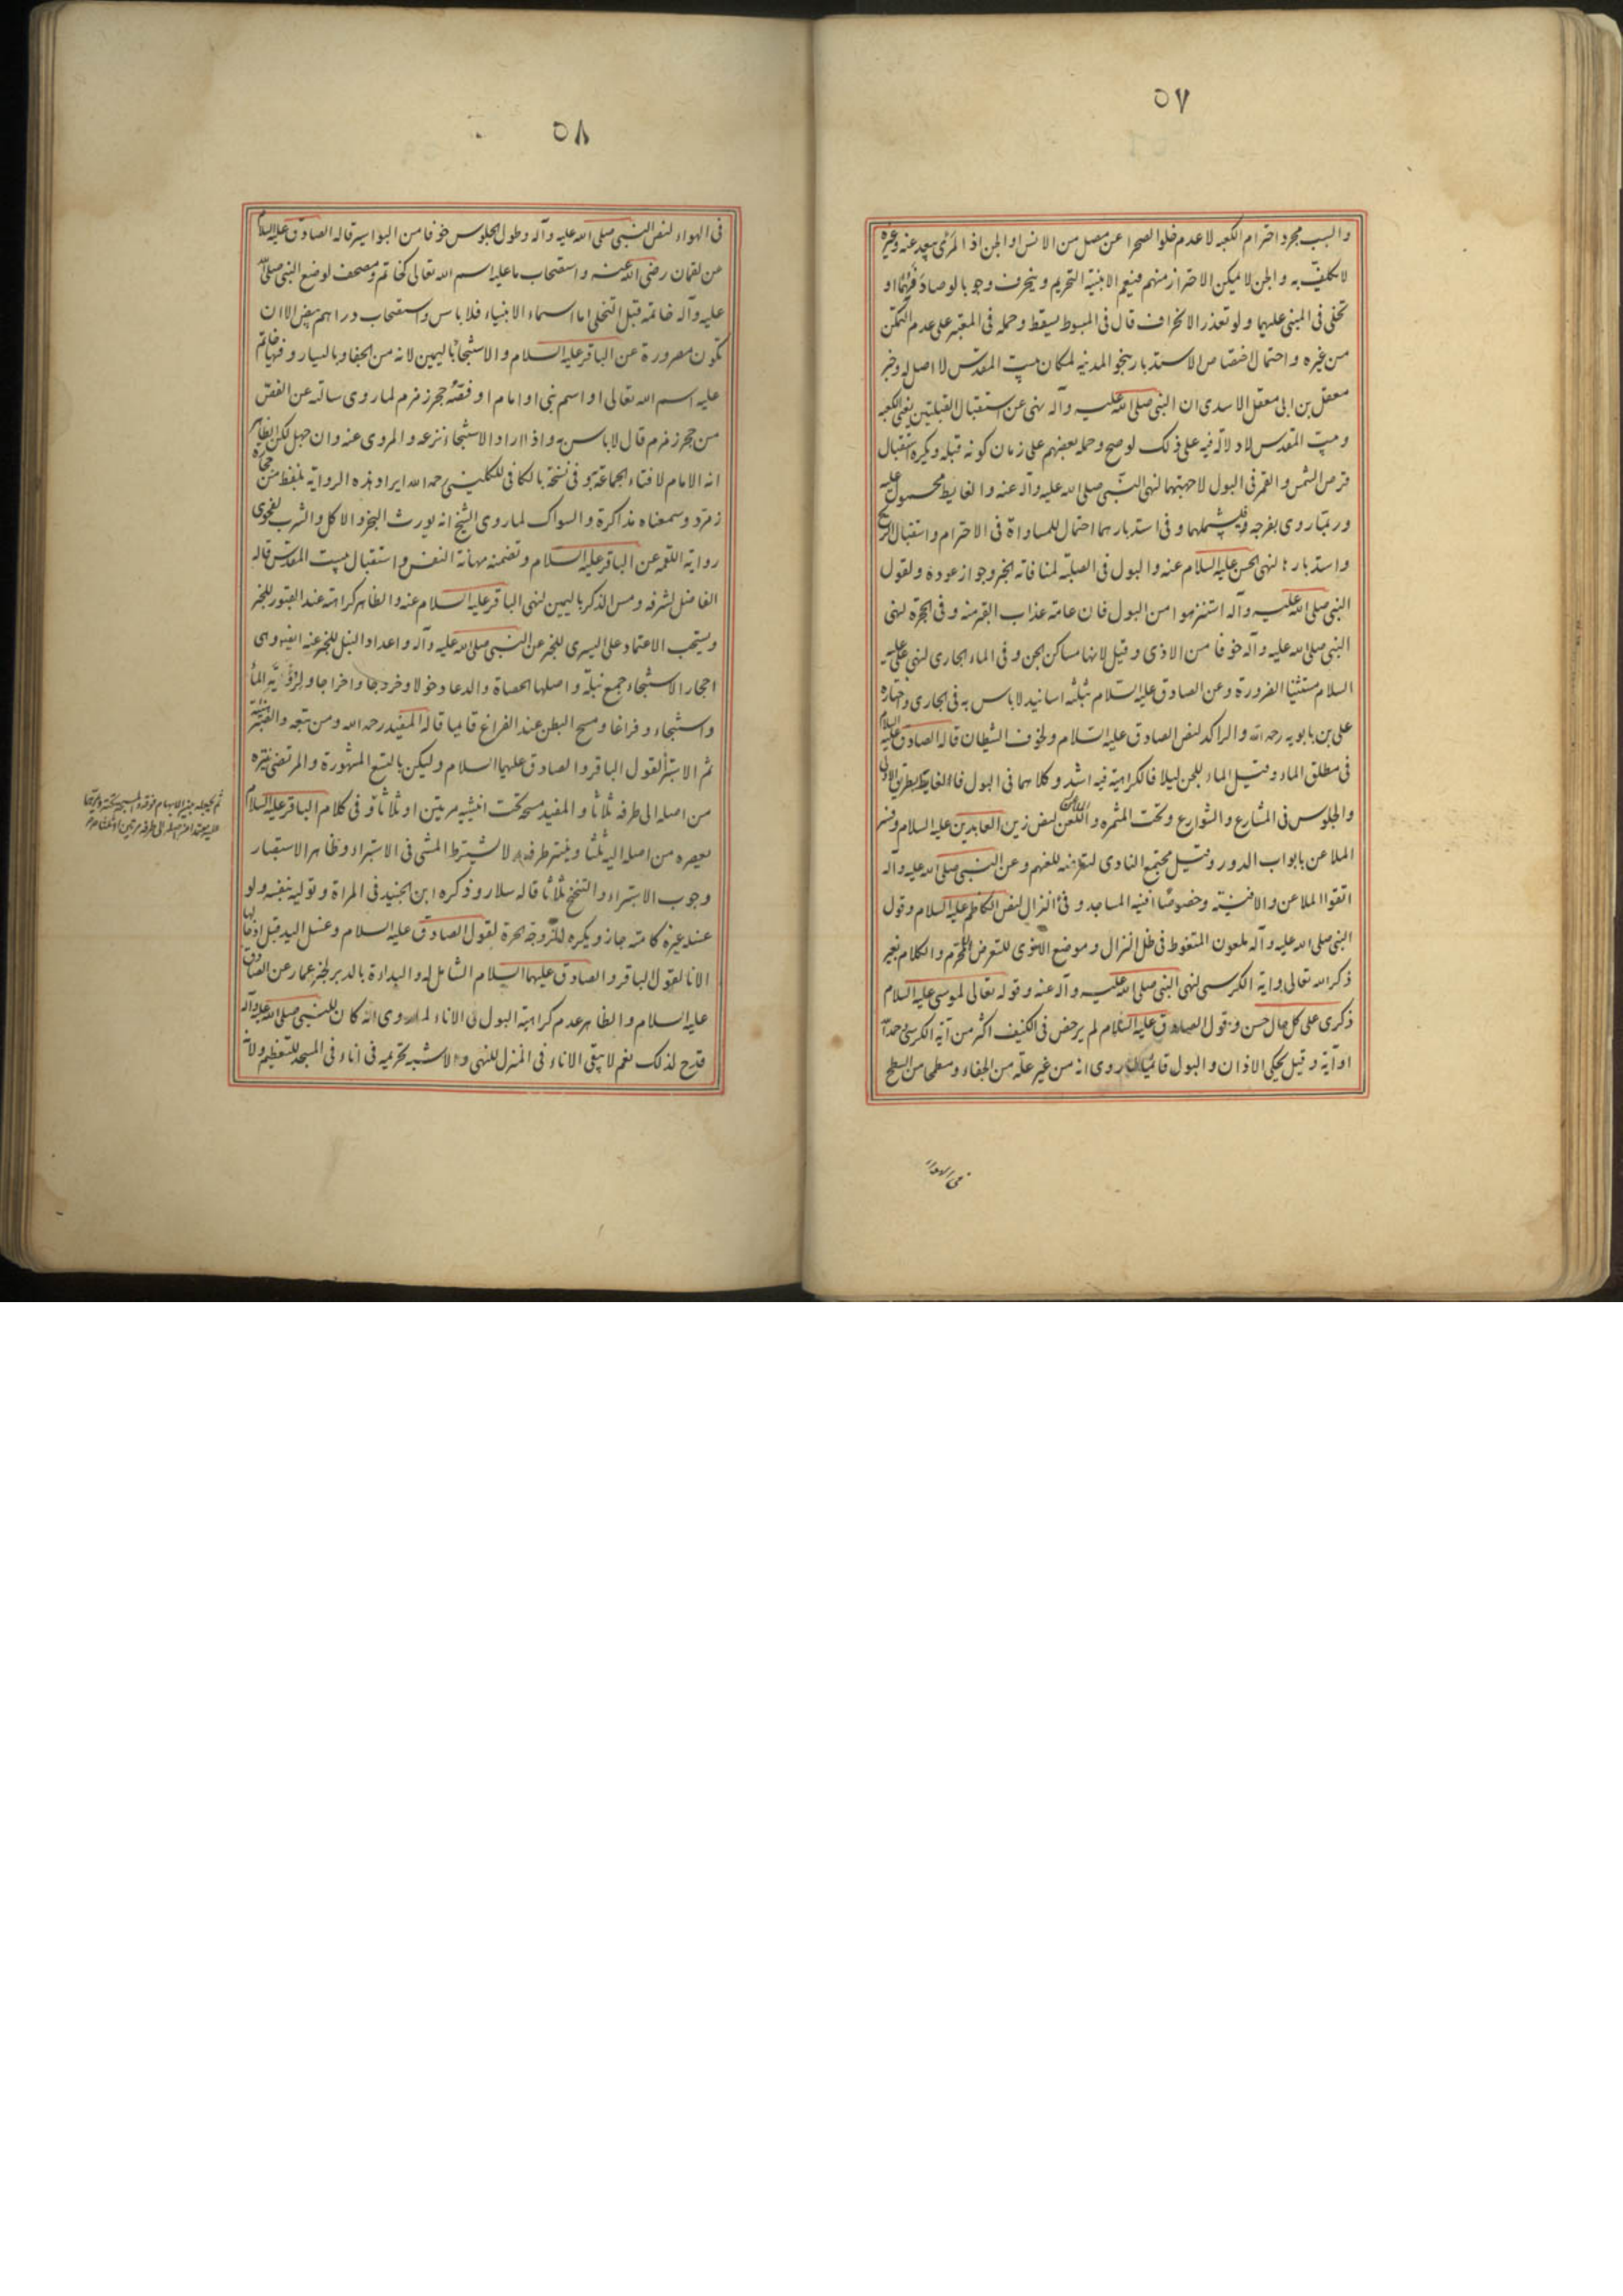 ٥٧
والسبب مجرد احترام الكعبه لا عدم خلو الصحرا عن مصل من الانس او الجن اذ المرئى يبعد عنه وغيره
لا تكليف به والجن لا يمكن الاحتراز منهم فنعم الابنية التحريم وينحرف وجوبا لو صادفهما او
تخلى فى المبنى عليهما ولو تعذر الانحراف قال فى المبسوط يسقط وحمله فى المعتبر على عدم التمكن
من غيره واحتمال اختصاص الاستدبار بنحو المدينه لمكان بيت المقدس لا اصل له وخبر
معقل بن ابى معقل الاسدى ان النبى صلى الله عليه وآله نهى عن استقبال القبلتين يعنى الكعبه
وبيت المقدس لا دلاله فيه على ذلك لو صح وحمله بعضهم على زمان كونه قبله ويكره استقبال
قرص الشمس والقمر فى البول لا جهتهما لنهى النبى صلى الله عليه وآله عنه والغايط محمول عليه
وربما روى بفرجه فيشملهما وفى استدبارهما احتمال للمساواة فى الاحترام واستقبال الريح
واستدبارها لنهى الحسن عليه السلام عنه والبول فى الصلبة لمنافاته الخبر وجواز عوده ولقول
النبى صلى الله عليه وآله استنزهوا من البول فان عامة عذاب القبر منه وفى الجحرة لنهى
النبى صلى الله عليه وآله خوفا من الاذى وقيل لانها مساكن الجن وفى الماء الجارى لنهى على عليه
السلام مستثنيا الضرورة وعن الصادق عليه السلام بثلثه اسانيد لا باس به فى الجارى واختاره
على بن بابويه رحمه الله والراكد لنص الصادق عليه السلام ولخوف الشيطان قاله الصادق عليه السلام
فى مطلق الماء وقيل الماء للجن ليلا فالكراهية فيه اشد وكلاهما فى البول فاالغايط بطريق الاولى
والجلوس فى المشارع والشوارع وتحت المثمره واللعن لنص زين العابدين عليه السلام وفسر
الملاعن بابواب الدور وقيل مجتمع النادى لتعرضه للعنهم وعن النبى صلى الله عليه وآله
اتقوا الملاعن والافنية وخصوصًا افنيه المساجد وفئ النزال لنص الكاظم عليه السلام وقول
النبى صلى الله عليه وآله ملعون المتغوط فى ظل النزال وموضع التأذى للتعرض للمحرم والكلام بغير
ذكر الله تعالى واية الكرسى لنهى النبى صلى الله عليه وآله عنه وقوله تعالى لموسى عليه السلام
ذكرى على كل حال حسن وقول الصادق عليه السلام لم يرخص فى الكنيف اكثر من آية الكرسى وحمد الله
او آية وقيل يحكى الاذان والبول قائما لما روى انه من غير علة من الجفاء ومطمحا من السطح
فى الهواء
٥٨
فى الهواء لنص النبى صلى الله عليه وآله وطول الجلوس خوفا من البواسير قاله الصادق عليه السلام
عن لقمان رضى الله عنه واستصحاب ما عليه اسم الله تعالى كخاتم ومصحف لوضع النبى صلى الله
عليه وآله خاتمه قبل التخلى اما اسماء الانبياء فلا باس واستصحاب دراهم بيض الا ان
تكون مصرورة عن الباقر عليه السلام والاستنجاء باليمين لانه من الجفا وباليسار وفيها خاتم
عليه اسم الله تعالى او اسم نبى او امام او فصّه حجر زمزم لما روى سالته عن الفص
من حجر زمزم قال لا باس به واذا اراد الاستنجاء نزعه والمروى عنه وان جهل لكن الظاهر
انه الامام لافتاء الجماعة به وفى نسخة بالكافى للكلينى رحمه الله ايراد هذه الرواية بلفظ من حجارة
زمرد وسمعناه مذاكرة والسواك لما روى الشيخ انه يورث البخر والاكل والشرب لفحوى
رواية اللقمة عن الباقر عليه السلام وتضمنه مهانة النفس واستقبال بيت المقدس قاله
الفاضل لشرفه ومس الذكر باليمين لنهى الباقر عليه السلام عنه والظاهر كراهته عند القبور للخبر
ويستحب الاعتماد على اليسرى للخبر عن النبى صلى الله عليه وآله واعداد النبل للخبر عنه ايضا وهى
احجار الاستنجاء جمع نبلة واصلها الحصاة والدعا دخولا وخروجا واخراجا ولرؤية الماء
واستنجاء وفراغا ومسح البطن عند الفراغ قايما قاله المفيد رحمه الله ومن تبعه
ثم الاستبراء لقول الباقر والصادق عليهما السلام وليكن بالتسع المشهورة والمرتضى ينتره
من اصله الى طرفه ثلاثا والمفيد مسحه تحت انثييه مرتين او ثلاثا وفى كلام الباقر عليه السلام
يعصره من اصله اليه ثلثا وينتر طرفه لا يشترط المشى فى الاستبراء وظاهر الاستبصار
وجوب الاستبراء والتنحنح ثلاثا قاله سلار وذكره ابن الجنيد فى المراة وتوليه بنفسه ولو
غسله غيره كامته جاز ويكره للزوجة الحرة لقول الصادق عليه السلام وغسل اليد قبل ادخالها
الانا لقول الباقر والصادق عليهما السلام الشامل له والبداءة بالدبر لخبر عمار عن الصادق
عليه السلام والظاهر عدم كراهية البول فى الاناء لما روى انه كان للنبى صلى الله عليه وآله
قدح لذلك نعم لا يبقى الاناء فى المنزل للنهى والاشبه تحريمه فى اناء فى المسجد للتعظيم ولانه